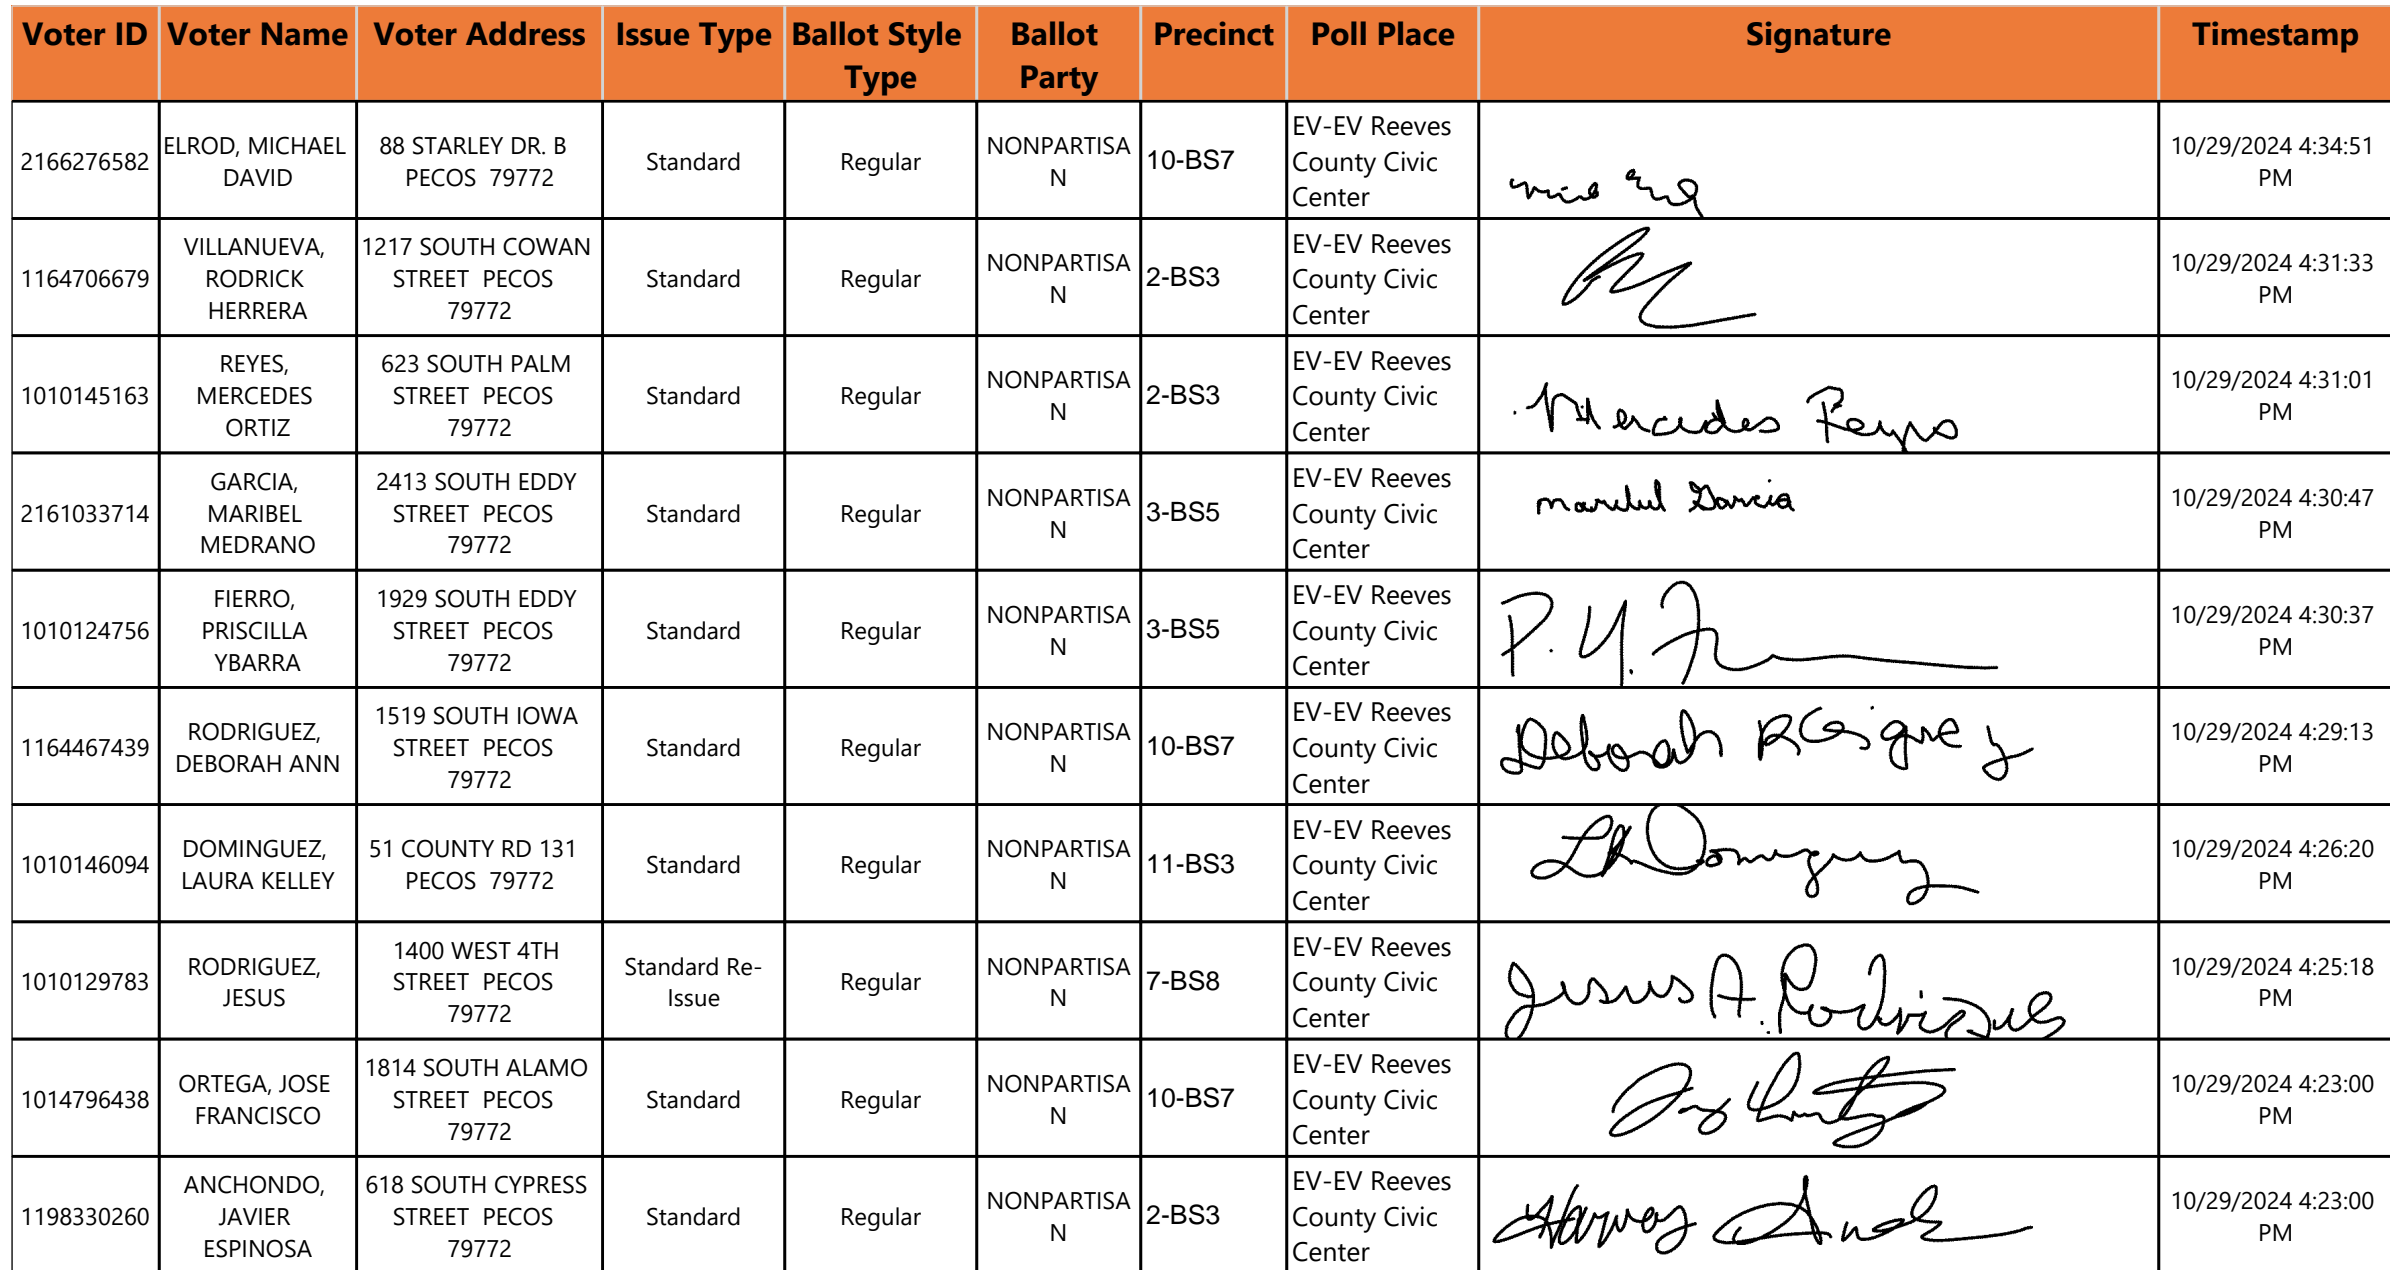 Voter ID Voter Name Voter Address Issue Type Ballot Style Type Ballot Party Precinct Poll Place Signature Timestamp
2166276582 ELROD, MICHAEL DAVID 88 STARLEY DR. B PECOS 79772 Standard Regular NONPARTISAN 10-BS7 EV-EV Reeves County Civic Center 10/29/2024 4:34:51 PM
1164706679 VILLANUEVA, RODRICK HERRERA 1217 SOUTH COWAN STREET PECOS 79772 Standard Regular NONPARTISAN 2-BS3 EV-EV Reeves County Civic Center 10/29/2024 4:31:33 PM
1010145163 REYES, MERCEDES ORTIZ 623 SOUTH PALM STREET PECOS 79772 Standard Regular NONPARTISAN 2-BS3 EV-EV Reeves County Civic Center Mercedes Reyes 10/29/2024 4:31:01 PM
2161033714 GARCIA, MARIBEL MEDRANO 2413 SOUTH EDDY STREET PECOS 79772 Standard Regular NONPARTISAN 3-BS5 EV-EV Reeves County Civic Center Maribel Garcia 10/29/2024 4:30:47 PM
1010124756 FIERRO, PRISCILLA YBARRA 1929 SOUTH EDDY STREET PECOS 79772 Standard Regular NONPARTISAN 3-BS5 EV-EV Reeves County Civic Center P. Y. 10/29/2024 4:30:37 PM
1164467439 RODRIGUEZ, DEBORAH ANN 1519 SOUTH IOWA STREET PECOS 79772 Standard Regular NONPARTISAN 10-BS7 EV-EV Reeves County Civic Center Deborah 10/29/2024 4:29:13 PM
1010146094 DOMINGUEZ, LAURA KELLEY 51 COUNTY RD 131 PECOS 79772 Standard Regular NONPARTISAN 11-BS3 EV-EV Reeves County Civic Center 10/29/2024 4:26:20 PM
1010129783 RODRIGUEZ, JESUS 1400 WEST 4TH STREET PECOS 79772 Standard Re-Issue Regular NONPARTISAN 7-BS8 EV-EV Reeves County Civic Center Jesus A. Rodriguez 10/29/2024 4:25:18 PM
1014796438 ORTEGA, JOSE FRANCISCO 1814 SOUTH ALAMO STREET PECOS 79772 Standard Regular NONPARTISAN 10-BS7 EV-EV Reeves County Civic Center 10/29/2024 4:23:00 PM
1198330260 ANCHONDO, JAVIER ESPINOSA 618 SOUTH CYPRESS STREET PECOS 79772 Standard Regular NONPARTISAN 2-BS3 EV-EV Reeves County Civic Center 10/29/2024 4:23:00 PM